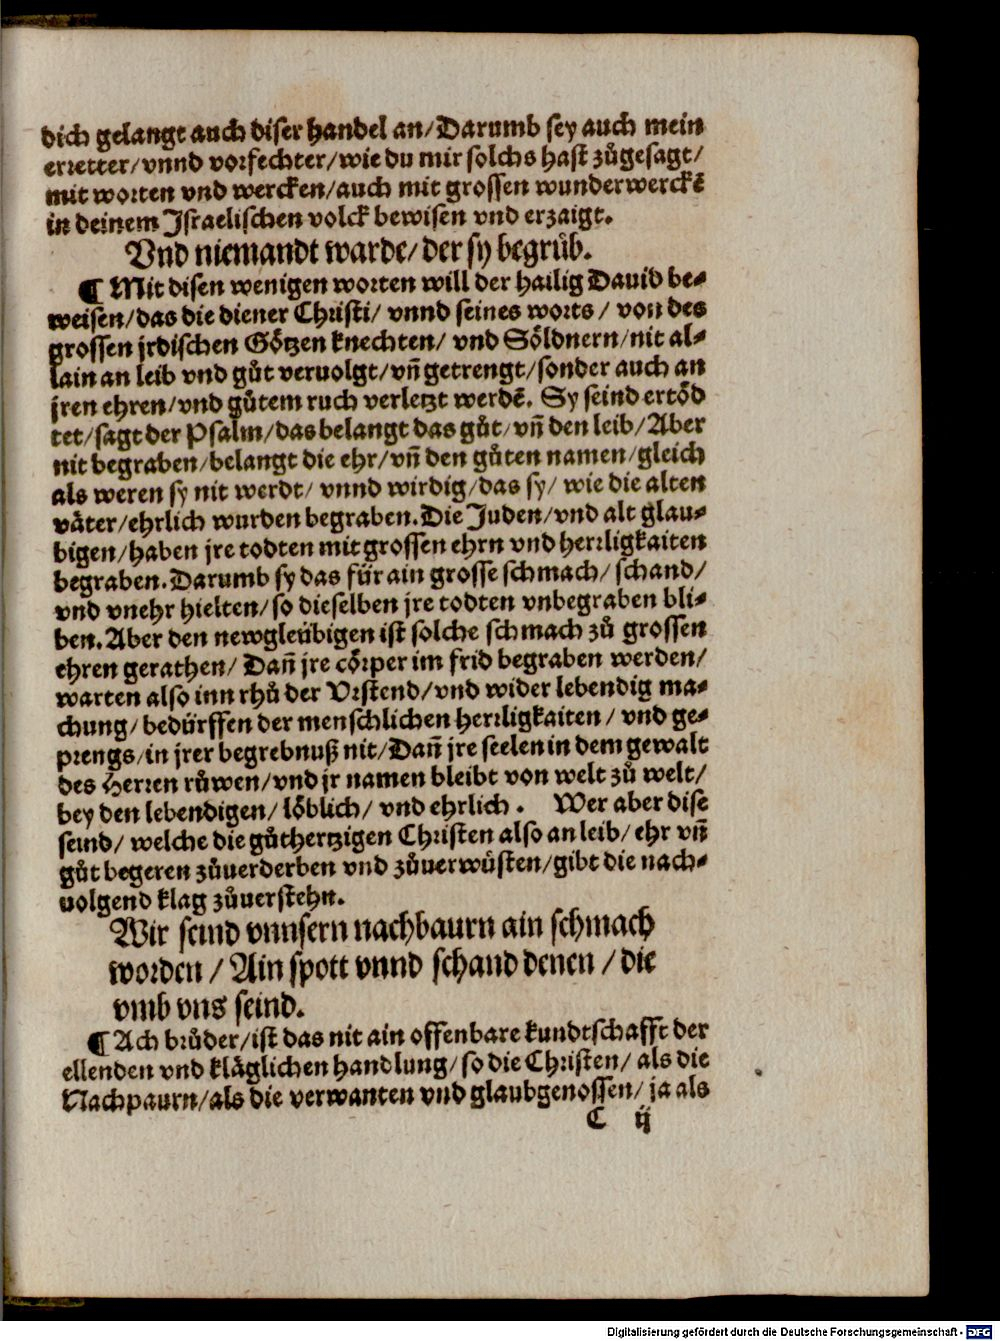 dich gelangt auch diser handel an/Darumb sey auch mein
erretter/vnnd vorfechter/wie du mir solchs hast zůgesagt/
mit worten vnd wercken/auch mit grossen wunderwerckē
in deinem Israelischen volck bewisen vnd erzaigt.
Vnd niemandt warde/der sy begrůb.
¶ Mit disen wenigen worten will der hailig Dauid be⸗
weisen/das die diener Christi/ vnnd seines worts/ von des
grossen jrdischen Götzen knechten/ vnd Söldnern/nit al⸗
lain an leib vnd gůt veruolgt/vn̄ getrengt/sonder auch an
jren ehren/vnd gůtem ruch verletzt werdē. Sy seind ertöd
tet/sagt der Psalm/das belangt das gůt/vn̄ den leib/Aber
nit begraben/belangt die ehr/vn̄ den gůten namen/gleich
als weren sy nit werdt/ vnnd wirdig/das sy/ wie die alten
väter/ehrlich wurden begraben.Die Juden/vnd alt glau⸗
bigen/haben jre todten mit grossen ehrn vnd herrligkaiten
begraben.Darumb sy das für ain grosse schmach/ schand/
vnd vnehr hielten/so dieselben jre todten vnbegraben bli⸗
ben.Aber den newgleübigen ist solche schmach zů grossen
ehren gerathen/ Dan̄ jre cörper im frid begraben werden/
warten also inn rhů der Vrstend/vnd wider lebendig ma⸗
chung/bedürffen der menschlichen herrligkaiten/ vnd ge⸗
prengs/in jrer begrebnuß nit/Dan̄ jre seelen in dem gewalt
des Herren růwen/vnd jr namen bleibt von welt zů welt/
bey den lebendigen/ löblich/ vnd ehrlich. Wer aber dise
seind/ welche die gůthertzigen Christen also an leib/ehr vn̄
gůt begeren zůuerderben vnd zůuerwüsten/gibt die nach⸗
uolgend klag zůuerstehn.
Wir seind vnnsern nachbaurn ain schmach
worden/ Ain spott vnnd schand denen/die
vmb vns seind.
¶ Ach brůder/ist das nit ain offenbare kundtschafft der
ellenden vnd kläglichen handlung/so die Christen/ als die
Nachpaurn/als die verwanten vnd glaubgenossen/ ja als
C ij
Digitalisierung gefördert durch die Deutsche Forschungsgemeinschaft - DFG